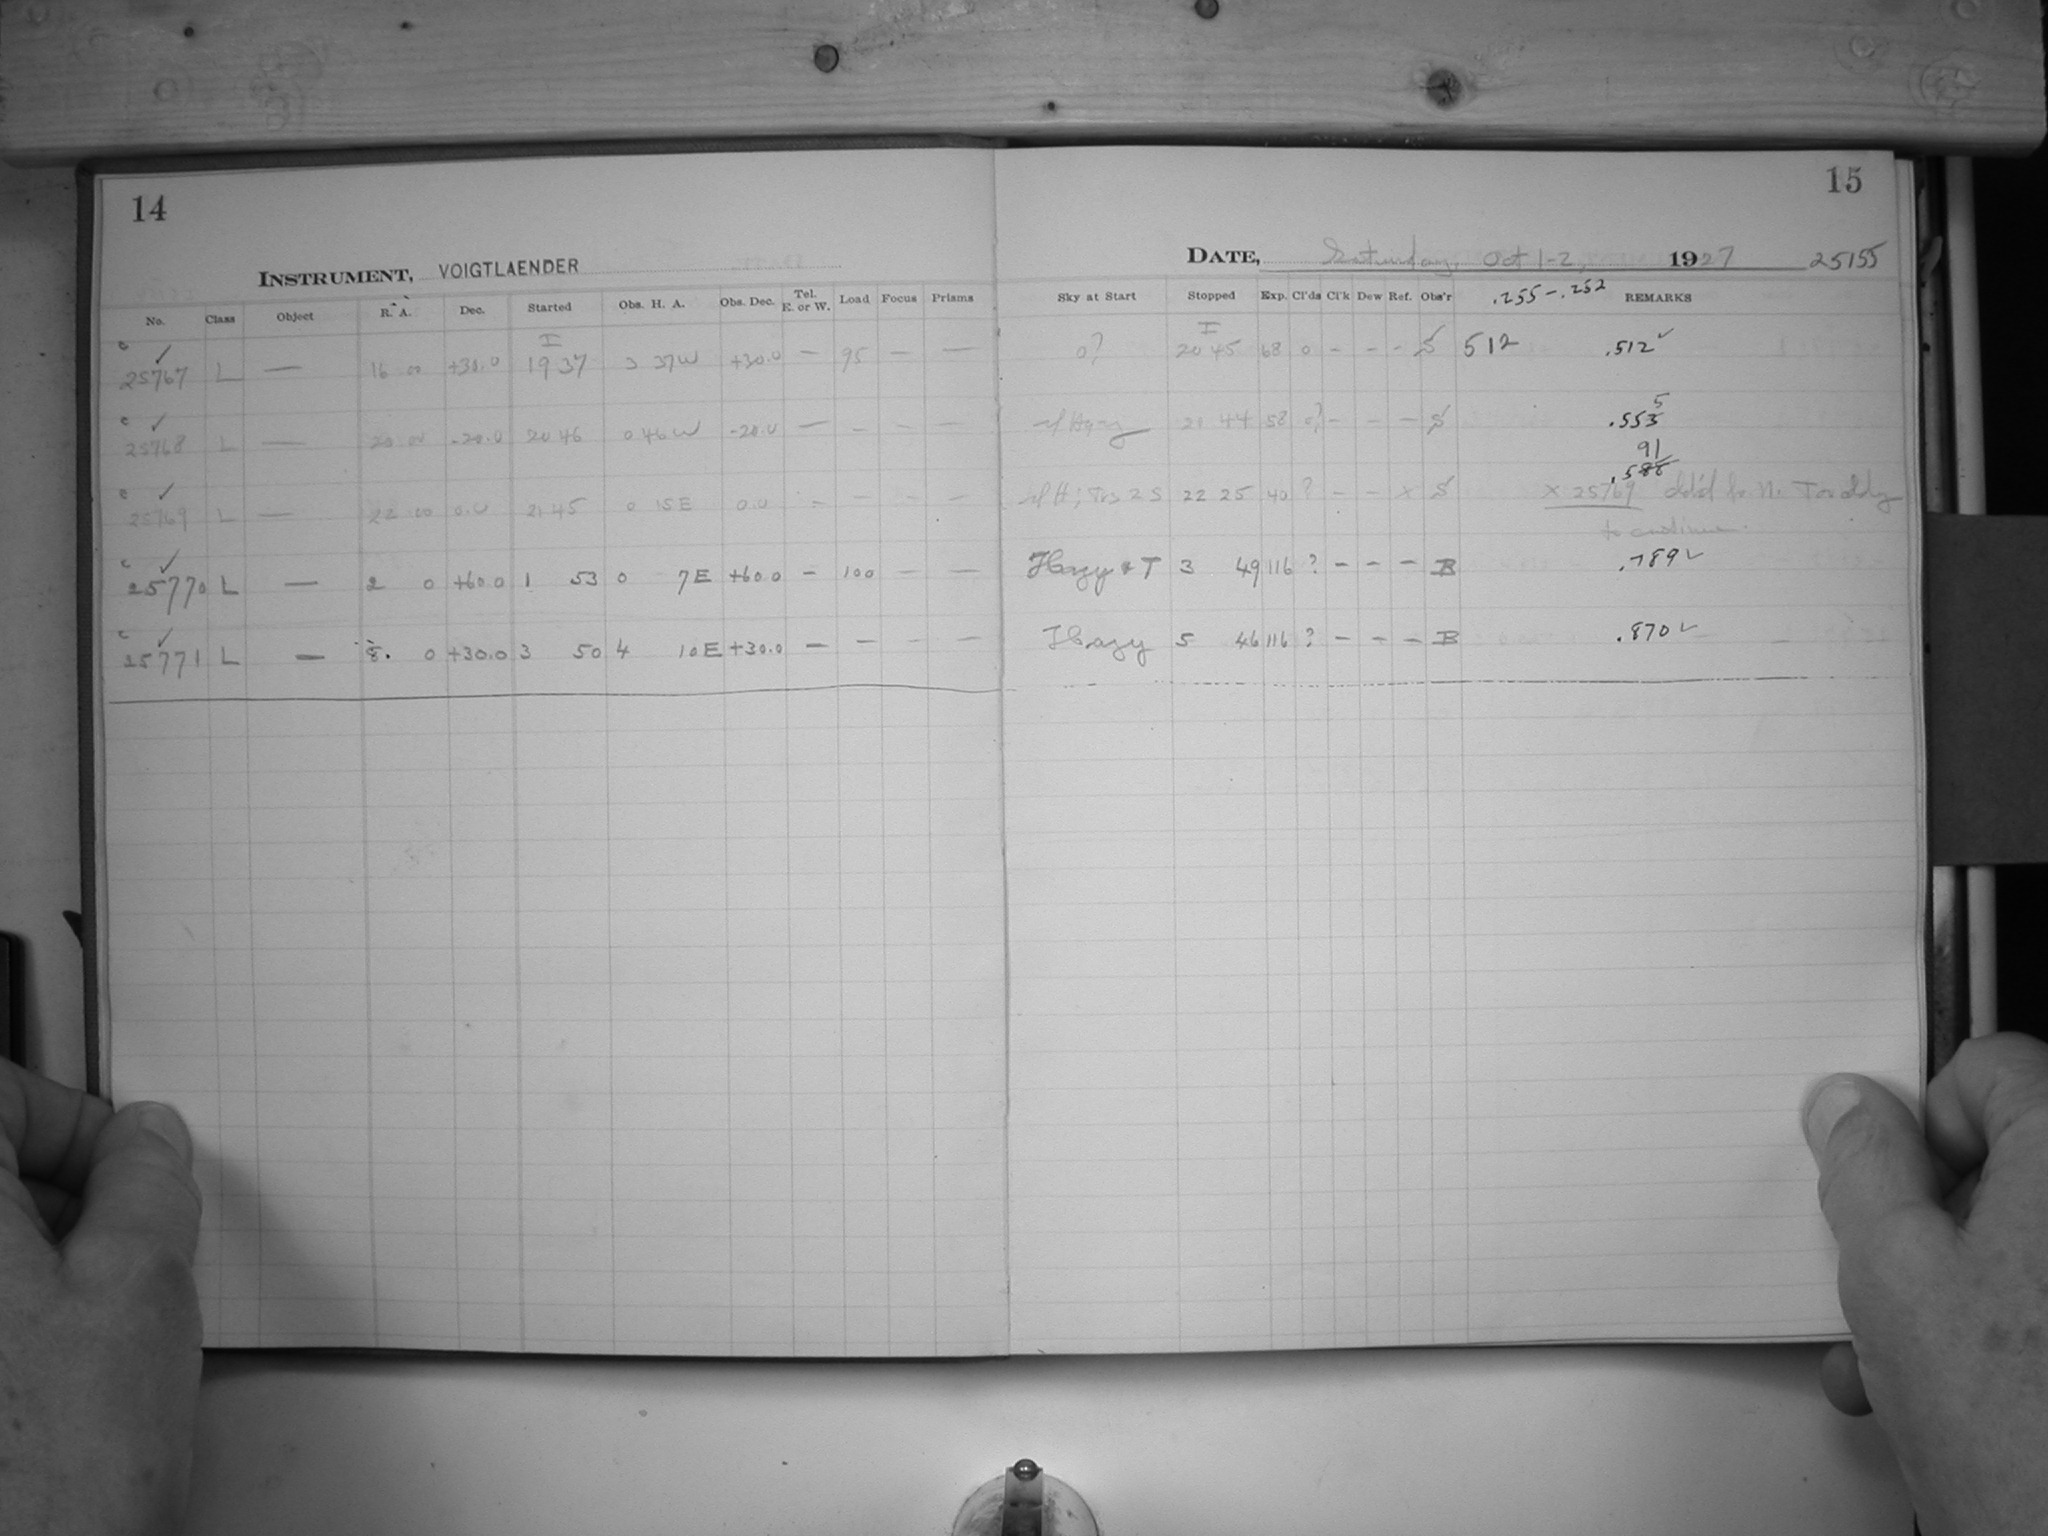 14
INSTRUMENT, VOIGTLAENDER
No. Class Object R. A. Dec. Started Obs. H. A. Obs. Dec. Tel. E. or W. Load Focus Prisms
c ✓ I
25767 L — 16 00 +30.0 19 37 3 37W +30.0 — 95 — —
c ✓
25768 L — 20 00 -20.0 20 46 0 46W -20.0 — — — —
c ✓
25769 L — 22 00 0.0 21 45 0 15E 0.0 — — — —
c ✓
25770 L — 2 0 +60.0 1 53 0 7E +60.0 — 100 — —
c ✓
25771 L — 8. 0 +30.0 3 50 4 10E +30.0 — — — —
15
DATE, Saturday, Oct 1-2, 1927 25155
Sky at Start Stopped Exp. Cl'ds Cl'k Dew Ref. Obs'r .255-.252 REMARKS
I
0? 20 45 68 0 - - - S 512 .512 ✓
5
Hazy 21 44 58 0? - - - S .553
91
.588
22 25 40 ? - - x S x 25769
to continue.
Hazy & T 3 49 116 ? - - - B .789 ✓
Hazy 5 46 116 ? - - - B .870 ✓